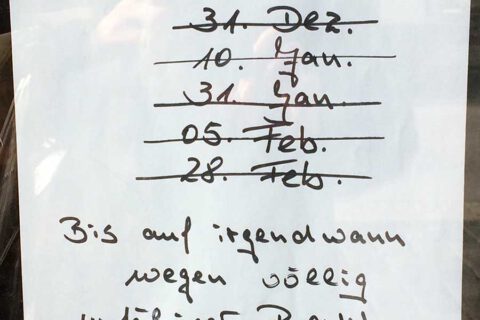 31. Dez.
10. Jan.
31. Jan.
05. Feb.
28. Feb.
Bis auf irgendwann
wegen völlig